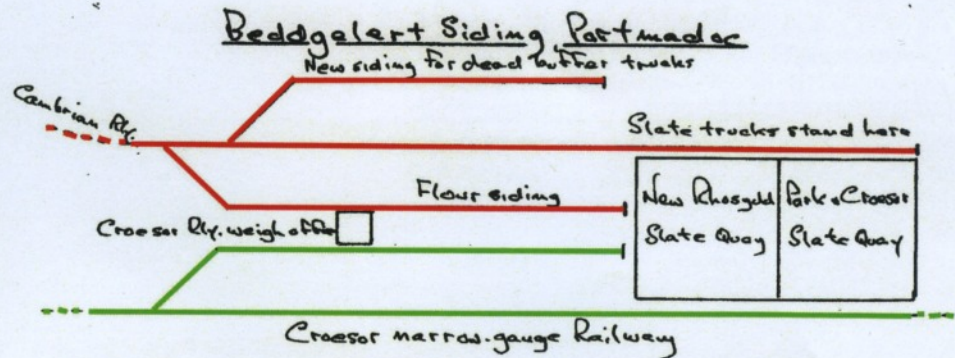 Beddgelert Siding, Portmadoc
New siding for dead buffer trucks
Cambrian Rly.
Slate trucks stand here
Flour siding
Croesor Rly. weigh office
New Rhosydd
Slate Quay
Park & Croesor
Slate Quay
Croesor narrow-gauge Railway